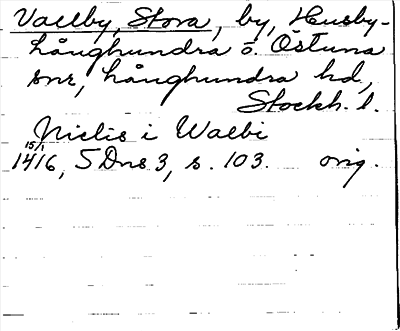 Vallby, Stora, by, Husby-
Långhundra o. Östuna
snr, Långhundra hd,
Stockh. l.
Niclis i Walbi
15/1
1416, SDns 3, s. 103. orig.